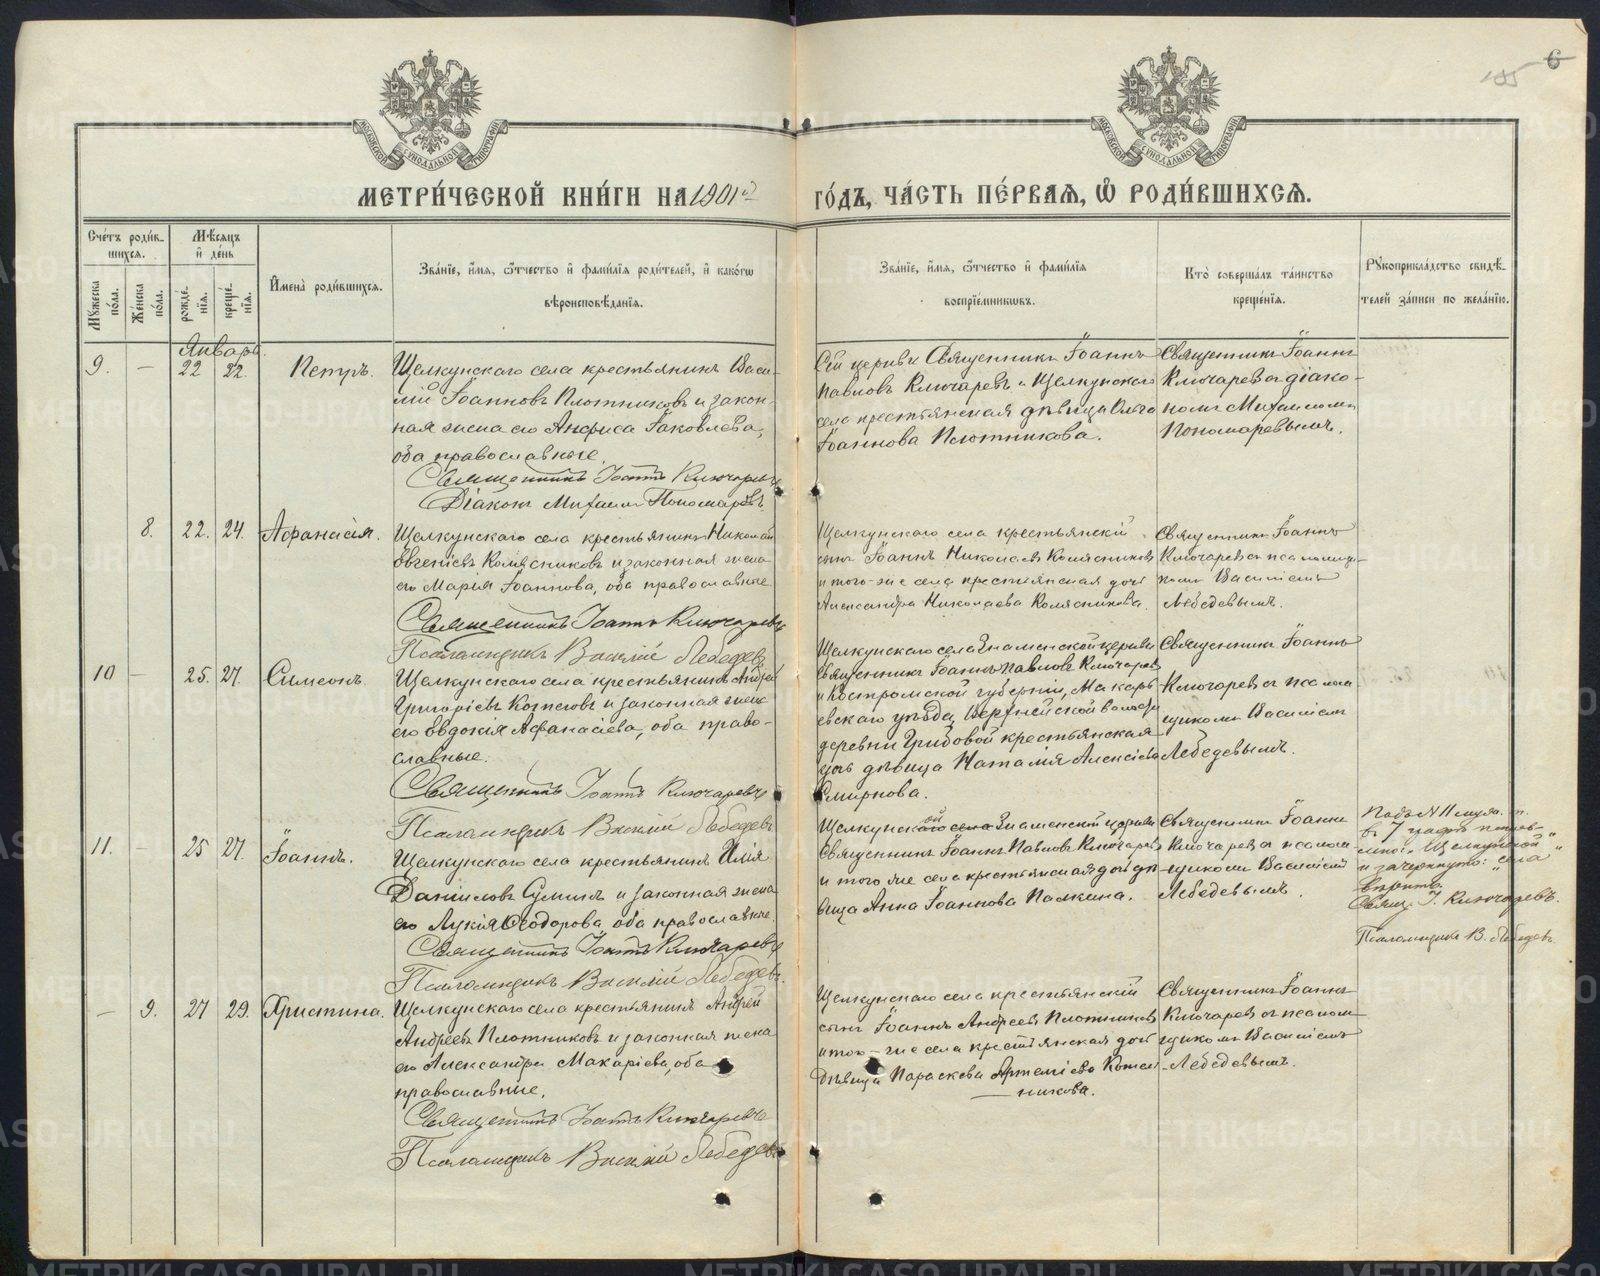 185 6
МОСКОВСКОЙ СѴНОДАЛЬНОЙ ТИПОГРАФІИ
МОСКОВСКОЙ СѴНОДАЛЬНОЙ ТИПОГРАФІИ
МЕТРИ́ЧЕСКОЙ КНИ́ГИ НА 1901й ГО́ДЪ, ЧА́СТЬ ПЕ́РВАЯ, Ѽ РОДИ́ВШИХСЯ.
Сче́тъ роди́вшихся.
Мѹ́жеска по́ла.
Же́нска по́ла.
Мѣ́сяцъ и҆ де́нь
рожде́нїя.
креще́нїя.
И҆мена̀ роди́вшихся.
Зва́нїе, и҆́мя, ѻ҆́тчество и҆ фами́лїя роди́телей, и҆ како́гѡ
вѣроисповѣ́данїя.
Зва́нїе, и҆́мя, ѻ҆́тчество и҆ фами́лїя
воспрїе́мникѡвъ.
Кто̀ соверша́лъ та́инство
креще́нїя.
Рѹкоприкла́дство свидѣ́-
телей за́писи по жела́нїю.
Январь.
9. — 22 22. Петръ.
Щелкунскаго села крестьянинъ Васи-
лій Іоанновъ Плотниковъ и закон-
ная жена его Анфиса Іаковлева,
оба православные.
Священникъ Іоаннъ Ключаревъ
Діаконъ Михаилъ Пономаревъ.
Сей церкви Священникъ Іоаннъ
Павловъ Ключаревъ и Щелкунскаго
села крестьянская дѣвица Ольга
Іоаннова Плотникова.
Священникъ Іоаннъ
Ключаревъ съ діако-
номъ Михаиломъ
Пономаревымъ.
8. 22. 24. Афанасія.
Щелкунскаго села крестьянинъ Николай
Евгеніевъ Колясниковъ и законная жена
его Марія Іоаннова, оба православные.
Священникъ Іоаннъ Ключаревъ
Псаломщикъ Василій Лебедевъ
Щелкунскаго села крестьянскій
сынъ Іоаннъ Николаевъ Колясниковъ
и того-же села крестьянская дочь
Александра Николаева Колясникова.
Священникъ Іоаннъ
Ключаревъ съ псаломщи-
комъ Василіемъ
Лебедевымъ.
10 — 25. 27. Симеонъ.
Щелкунскаго села крестьянинъ Андрей
Григоріевъ Копысовъ и законная жена
его Евдокія Афанасіева, оба право-
славные.
Священникъ Іоаннъ Ключаревъ
Псаломщикъ Василій Лебедевъ
Щелкунскаго села Знаменской церкви
Священникъ Іоаннъ Павловъ Ключаревъ
и Костромской губерніи, Макарь-
евскаго уѣзда, Верхнейской волости
деревни Грибовой крестьянская
дочь дѣвица Наталія Алексіева
Смирнова.
Священникъ Іоаннъ
Ключаревъ съ псалом-
щикомъ Василіемъ
Лебедевымъ.
11. — 25 27. Іоаннъ.
Щелкунскаго села крестьянинъ Илія
Даніиловъ Суминъ и законная жена
его Лукія Ѳеодорова, оба православные.
Священникъ Іоаннъ Ключаревъ
Псаломщикъ Василій Лебедевъ.
Щелкунскаго ой села Знаменской церкви
Священникъ Іоаннъ Павловъ Ключаревъ
и того же села крестьянская дочь дѣ-
вица Анна Іоаннова Палкина.
Священникъ Іоаннъ
Ключаревъ съ псалом-
щикомъ Василіемъ
Лебедевымъ.
Подъ N 11 муж. п.
въ 7 графѣ
„Щелкунской"
и зачеркнуто: „села"
вѣрно.
Свящ. І. Ключаревъ.
Псаломщикъ В. Лебедевъ
— 9. 27 29. Христина.
Щелкунскаго села крестьянинъ Андрей
Андреевъ Плотниковъ и законная жена
его Александра Макаріева, оба
православные.
Священникъ Іоаннъ Ключаревъ
Псаломщикъ Василій Лебедевъ
Щелкунскаго села крестьянскій
сынъ Іоаннъ Андреевъ Плотниковъ
и того-же села крестьянская дочь
дѣвица Параскева Артеміева Котел-
никова.
Священникъ Іоаннъ
Ключаревъ съ псалом-
щикомъ Василіемъ
Лебедевымъ.